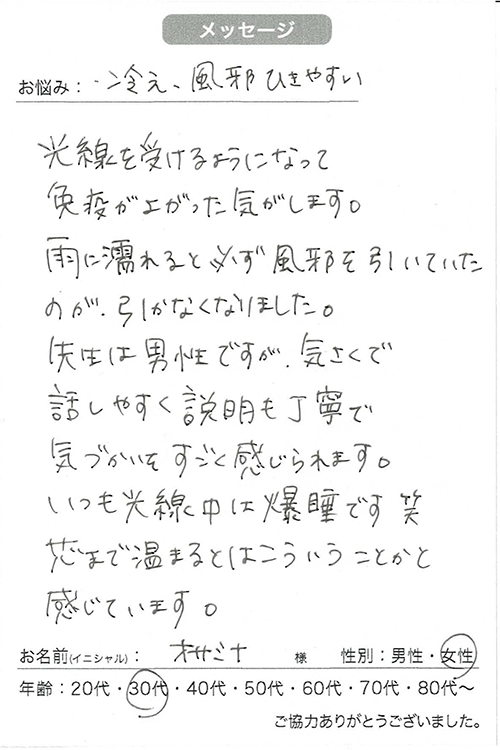 メッセージ
お悩み：・冷え、風邪ひきやすい
光線を受けるようになって
免疫が上がった気がします。
雨に濡れると必ず風邪を引いていた
のが、引かなくなりました。
先生は男性ですが、気さくで
話しやすく説明も丁寧で
気づかいをすごく感じられます。
いつも光線中は爆睡です笑
芯まで温まるとはこういうことかと
感じています。
お名前(イニシャル)：オサミナ 様 性別：男性・女性
年齢：20代・30代・40代・50代・60代・70代・80代〜
ご協力ありがとうございました。